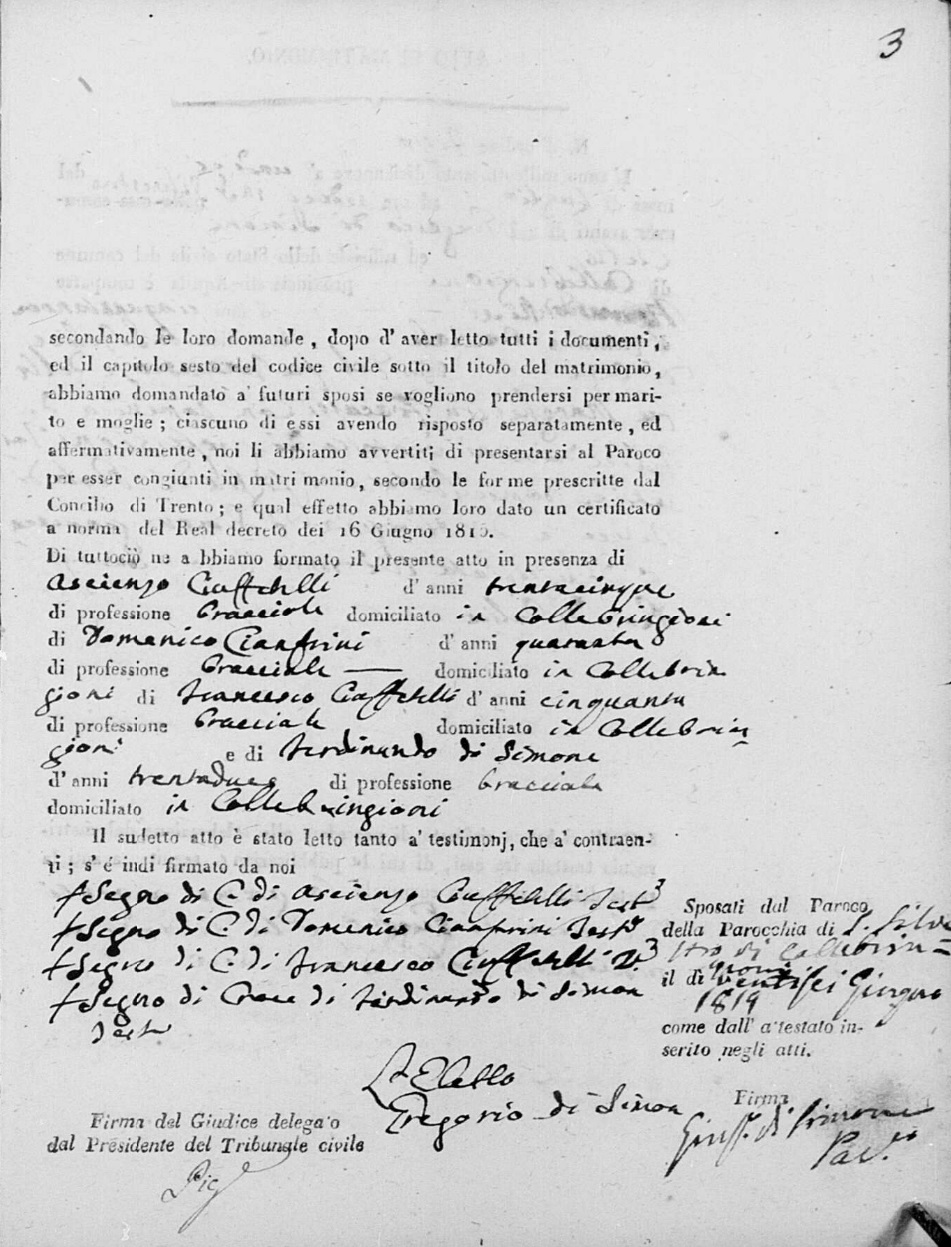 3
secondando le loro domande, dopo d' aver letto tutti i documenti,
ed il capitolo sesto del codice civile sotto il titolo del matrimonio,
abbiamo domandato a' futuri sposi se vogliono prendersi per mari-
to e moglie; ciascuno di essi avendo risposto separatamente, ed
affermativamente, noi li abbiamo avvertiti di presentarsi al Paroco
per esser congiunti in matri monio, secondo le forme prescritte dal
Concilio di Trento; e qual effetto abbiamo loro dato un certificato
a norma del Real decreto dei 16 Giugno 181
Di tuttociò ne a bbiamo formato il presente atto in presenza di
Ascenzo Ciuffetelli d' anni trentacinque
di professione Bracciale domiciliato in Collebringioni
di Domenico Cianfrini d' anni quaranta
di professione Bracciale — domiciliato in Collebrin
gioni di Francesco Ciuffetelli d' anni cinquanta
di professione Bracciale domiciliato in Collebrin
gioni e di Ferdinando di Simone
d' anni trentadue di professione Bracciale
domiciliato in Collebringioni
Il sudetto atto è stato letto tanto a' testimonj, che a' contraen-
ti; s' é indi firmato da noi
+ Segno di C. di Ascenzo Ciuffetelli Test
+ Segno di C. di Domenico Cianfrini Test
+ Segno di C. di Francesco Ciuffetelli
+ Segno di Croce di Ferdinando di Simon
Test
Sposati dal Paroco
della Parocchia di S. Silve
stro di Collebrin-
il di gioni ventisei Giugno
1819
come dall' attestato in-
serito negli atti.
L'Eletto
Gregorio di Simon
Firma del Giudice delegato
dal Presidente del Tribunale civile
Firma
Gius. di Simone
Par.